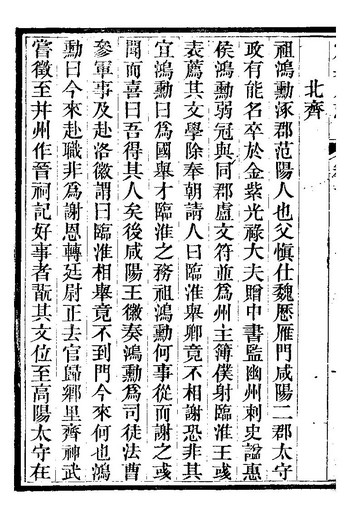 北齊
祖鴻勳涿郡范陽人也父愼仕魏歷雁門咸陽二郡太守
政有能名卒於金紫光祿大夫贈中書監幽州刺史諡惠
侯鴻勳弱冠與同郡盧文符並爲州主簿僕射臨淮王彧
表薦其文學除奉朝請人曰臨淮舉卿竟不相謝恐非其
宜鴻勳曰爲國舉才臨淮之務祖鴻勳何事從而謝之彧
聞而喜曰吾得其人矣後咸陽王徽奏鴻勳爲司徒法曹
參軍事及赴洛徽謂曰臨淮相舉竟不到門今來何也鴻
勳曰今來赴職非爲謝恩轉廷尉正去官歸鄉里齊神武
嘗徵至并州作晉祠記好事者翫其文位至高陽太守在